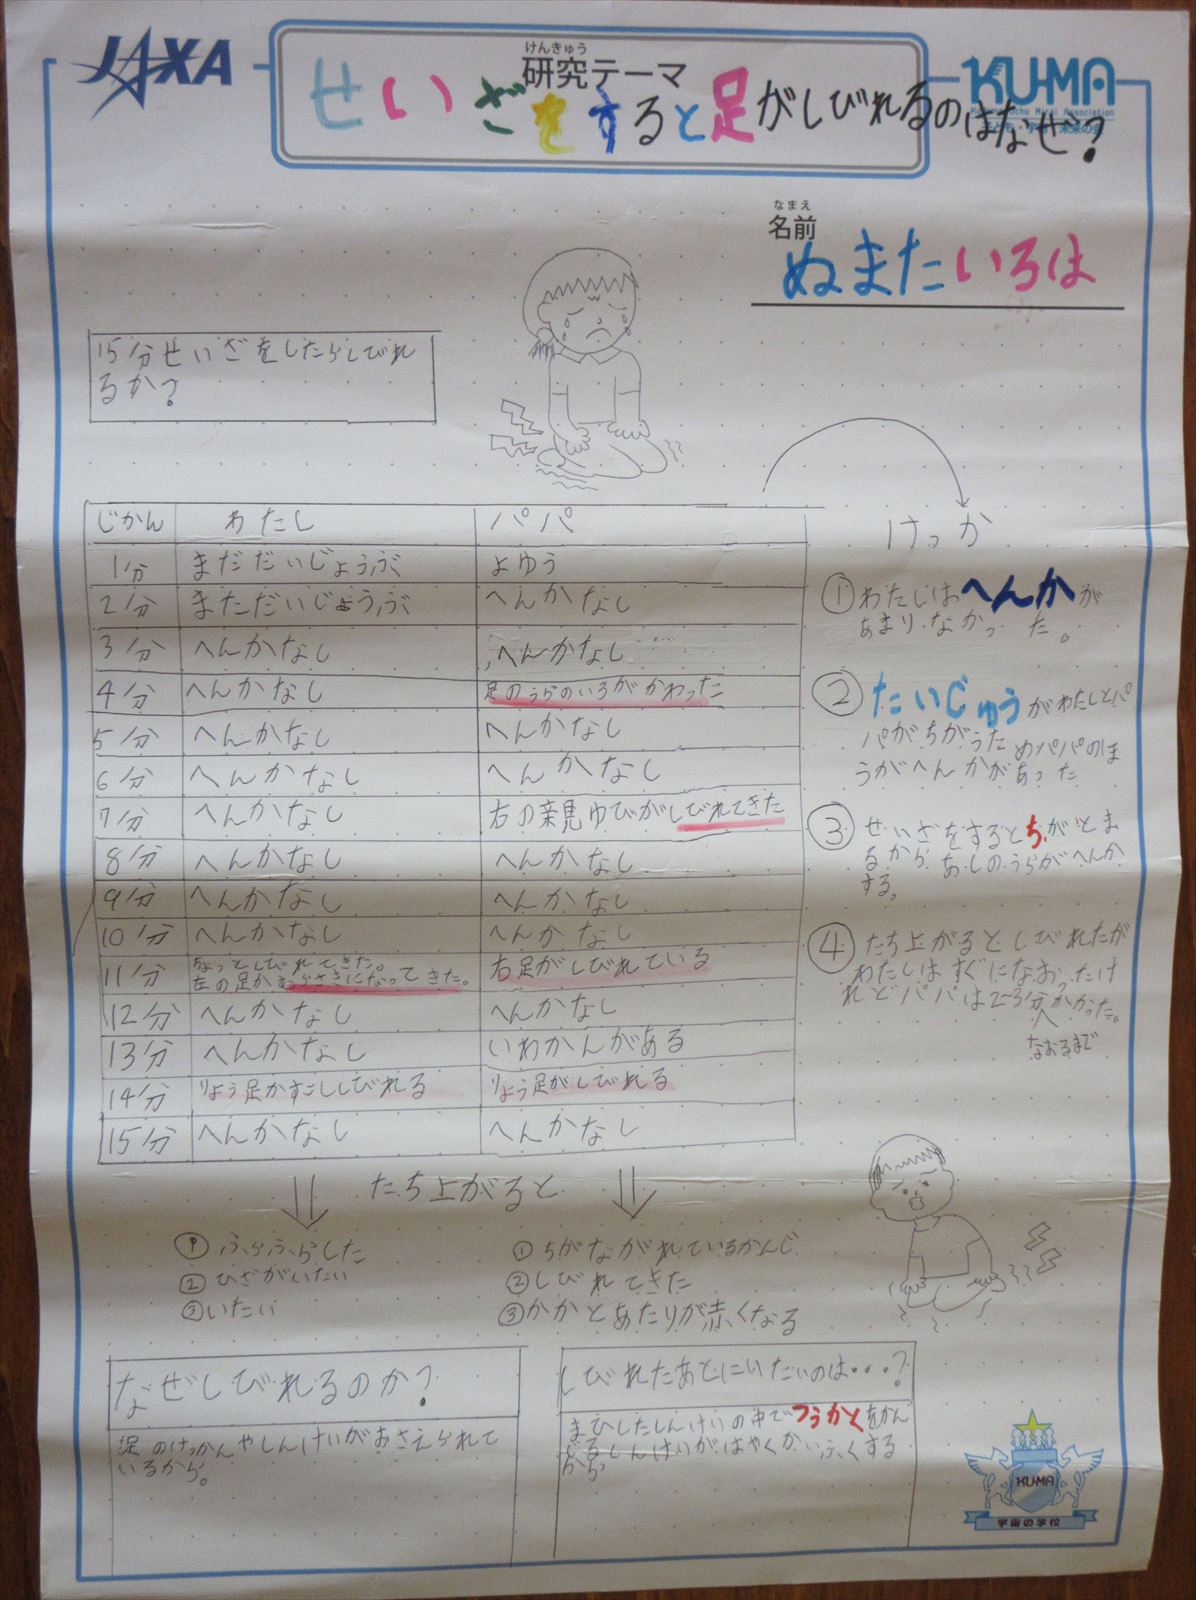 JAXA
けんきゅう
研究テーマ
KU-MA
せいざをすると足がしびれるのはなぜ?
なまえ
名前
ぬまたいろは
15分せいざをしたらしびれ
るか?
じかん わたし パパ
1分 まだだいじょうぶ よゆう
2分 まだだいじょうぶ へんかなし
3分 へんかなし へんかなし
4分 へんかなし 足のうらのいろがかわった
5分 へんかなし へんかなし
6分 へんかなし へんかなし
7分 へんかなし 右の親ゆびがしびれてきた
8分 へんかなし へんかなし
9分 へんかなし へんかなし
10分 へんかなし へんかなし
11分 ちょっとしびれてきた。
左の足がむらさきになってきた。 右足がしびれている
12分 へんかなし へんかなし
13分 へんかなし いわかんがある
14分 りょう足がすこししびれる りょう足がしびれる
15分 へんかなし へんかなし
けっか
①わたしはへんかが
あまりなかった。
②たいじゅうがわたしとパ
パがちがうためパパのほ
うがへんかがあった
③せいざをするとちがとま
るからあしのうらがへんか
する。
④たち上がるとしびれたが
わたしはすぐになおったけ
れどパパは2~3分かかった。
なおるまで
たち上がると
①ふらふらした
②ひざがいたい
③いたい
①ちがながれているかんじ
②しびれてきた
③かかとあたりが赤くなる
なぜしびれるのか?
足のけっかんやしんけいがおさえられて
いるから。
しびれたあとにいたいのは・・・?
まひしたしんけいの中でつうかくをかん
じるしんけいがはやくかいふくする
から
KU-MA
宇宙の学校